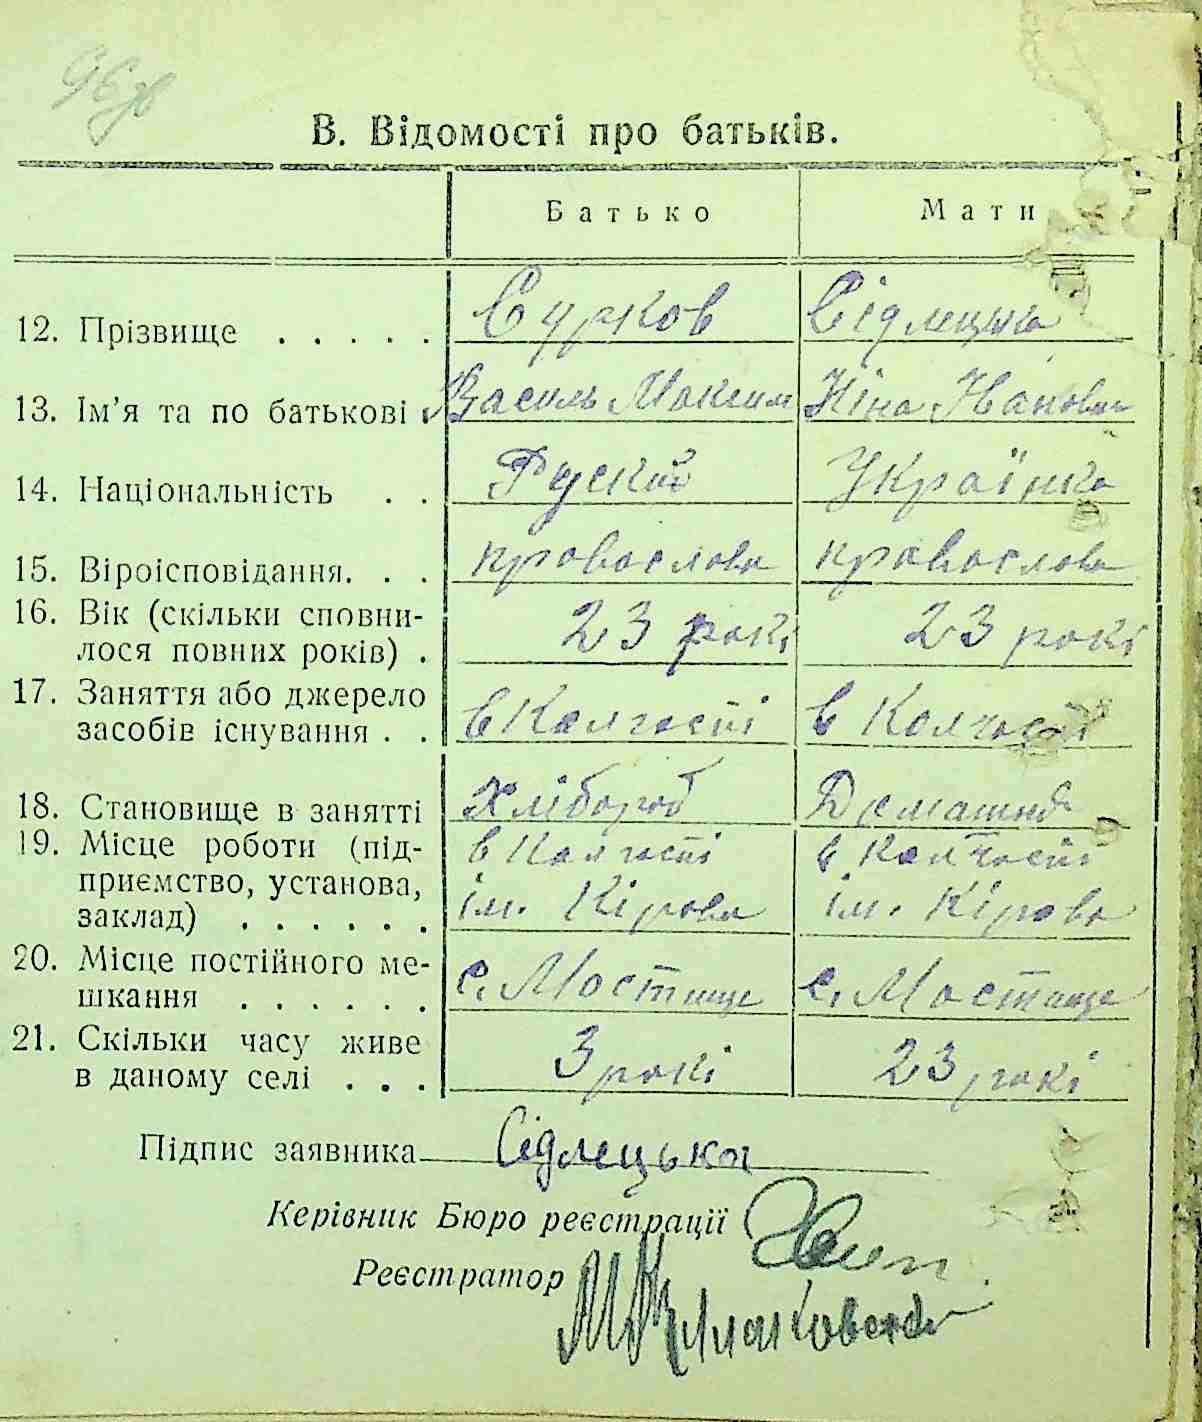 96зв
В. Відомості про батьків.
Батько Мати
12. Прізвище . . . . . Сурков Сідлецька
13. Ім'я та по батькові . Василь Максим Ніна Івановн
14. Національність . . Руский Українка
15. Віроісповідання. . . православн православн
16. Вік (скільки сповни-
лося повних років) . 23 рокі 23 рокі
17. Заняття або джерело
засобів існування . . в Колгоспі в Колгоспі
18. Становище в занятті Хлібороб Домашня
19. Місце роботи (під- в Колгоспі в Колгоспі
приємство, установа,
заклад) . . . . . . ім. Кірова ім. Кірова
20. Місце постійного ме-
шкання . . . . . . с. Мостище с. Мостище
21. Скільки часу живе
в даному селі . . . 3 рокі 23 рокі
Підпис заявника Сідлецька
Керівник Бюро реєстрації
Реєстратор